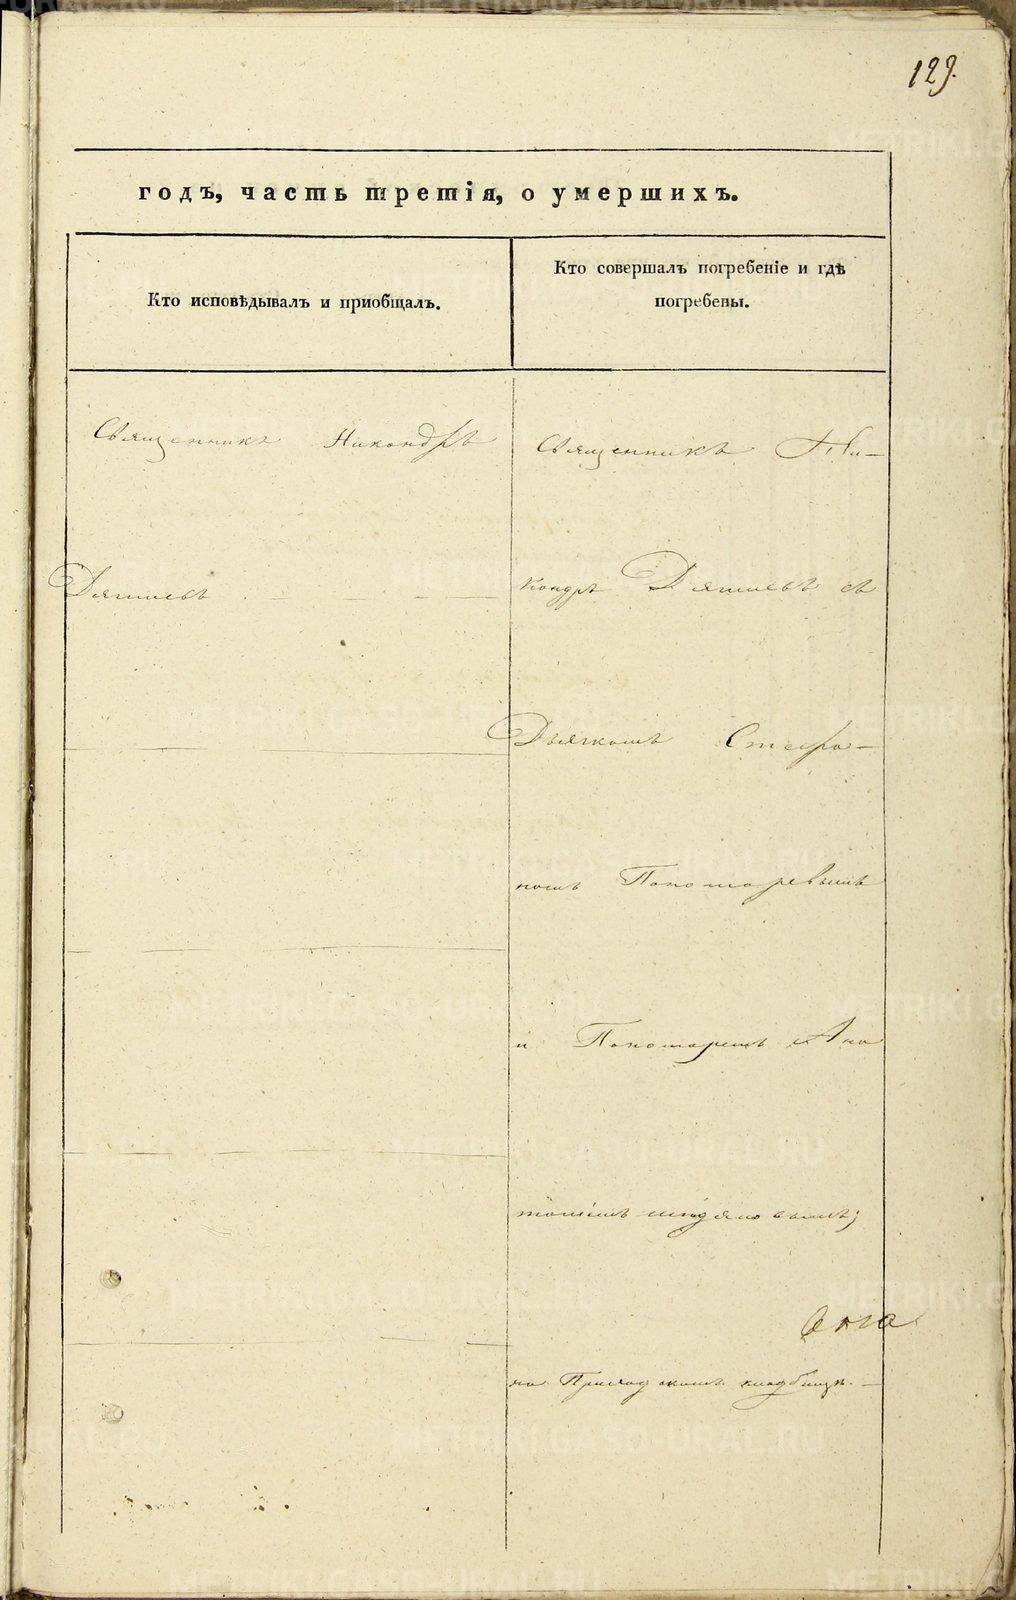 129.
годъ, часть третія, о умершихъ.
Кто исповѣдывалъ и приобщалъ.
Кто совершалъ погребеніе и гдѣ
погребены.
Священникъ Никандръ
Священникъ Ни-
кандръ съ
Дьячкомъ Стефа-
номъ Пономаревымъ
и Пономаремъ Ана
на Приходскомъ кладбищѣ.
METRIKI.GASO-URAL.RU